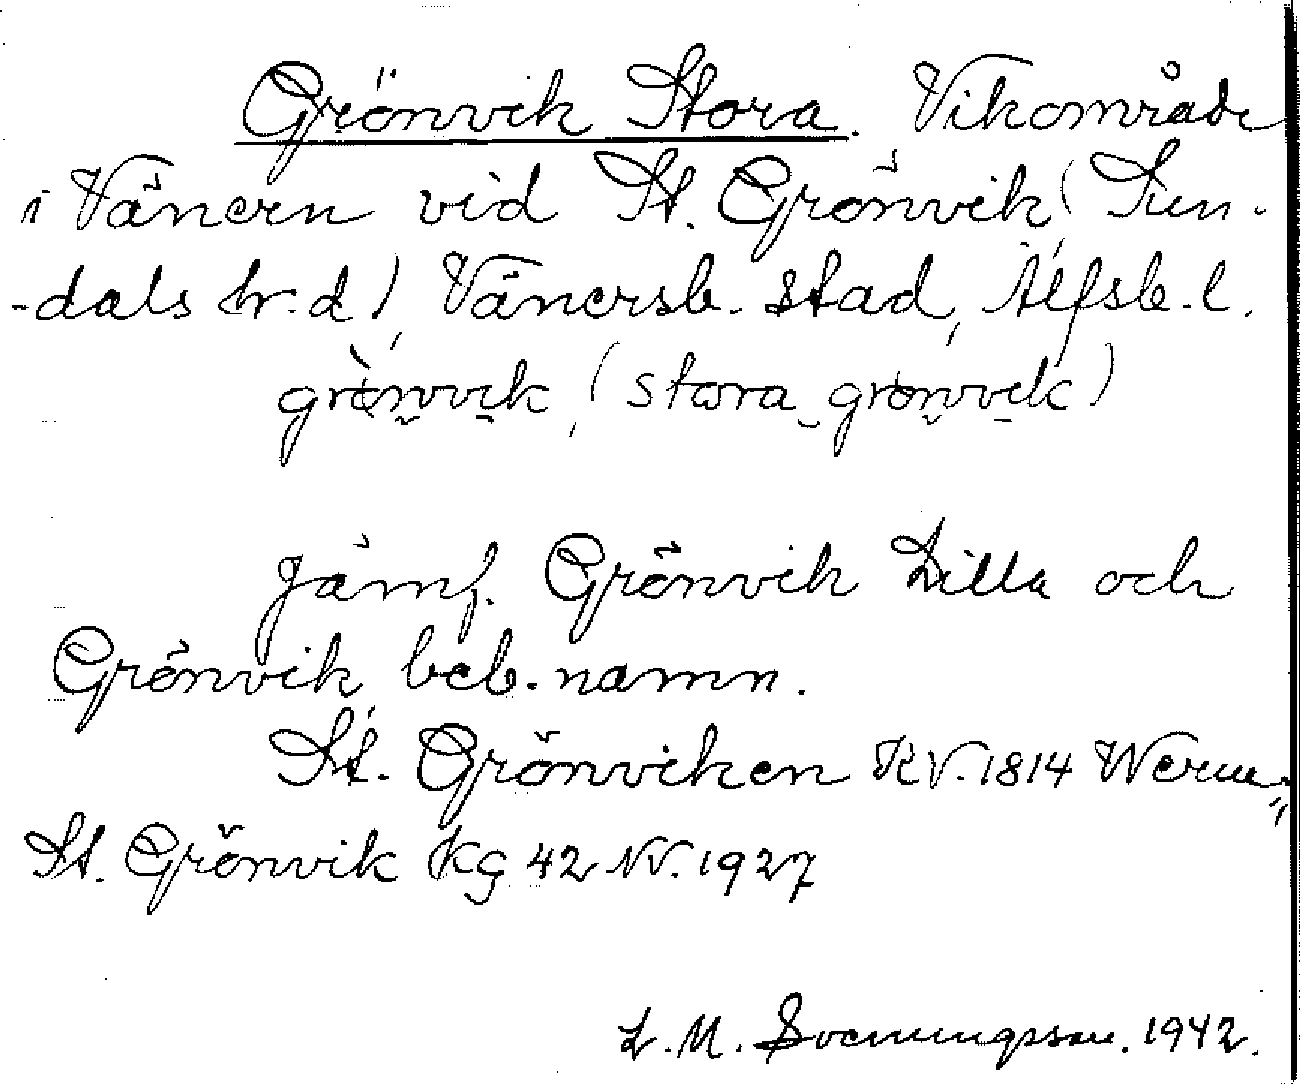 Grönvik Stora. Vikområde
i Vänern vid St. Grönvik (Sun-
-dals hr.d), Vänersb. stad, Älfsb. l.
grònvik, (stora grònvik)
Jämf. Grönvik Lilla och
Grönvik beb. namn.
St. Grönviken KV. 1814 Werm„
St. Grönvik Kg 42 NV. 1927
L. M. Svenungsson. 1942.